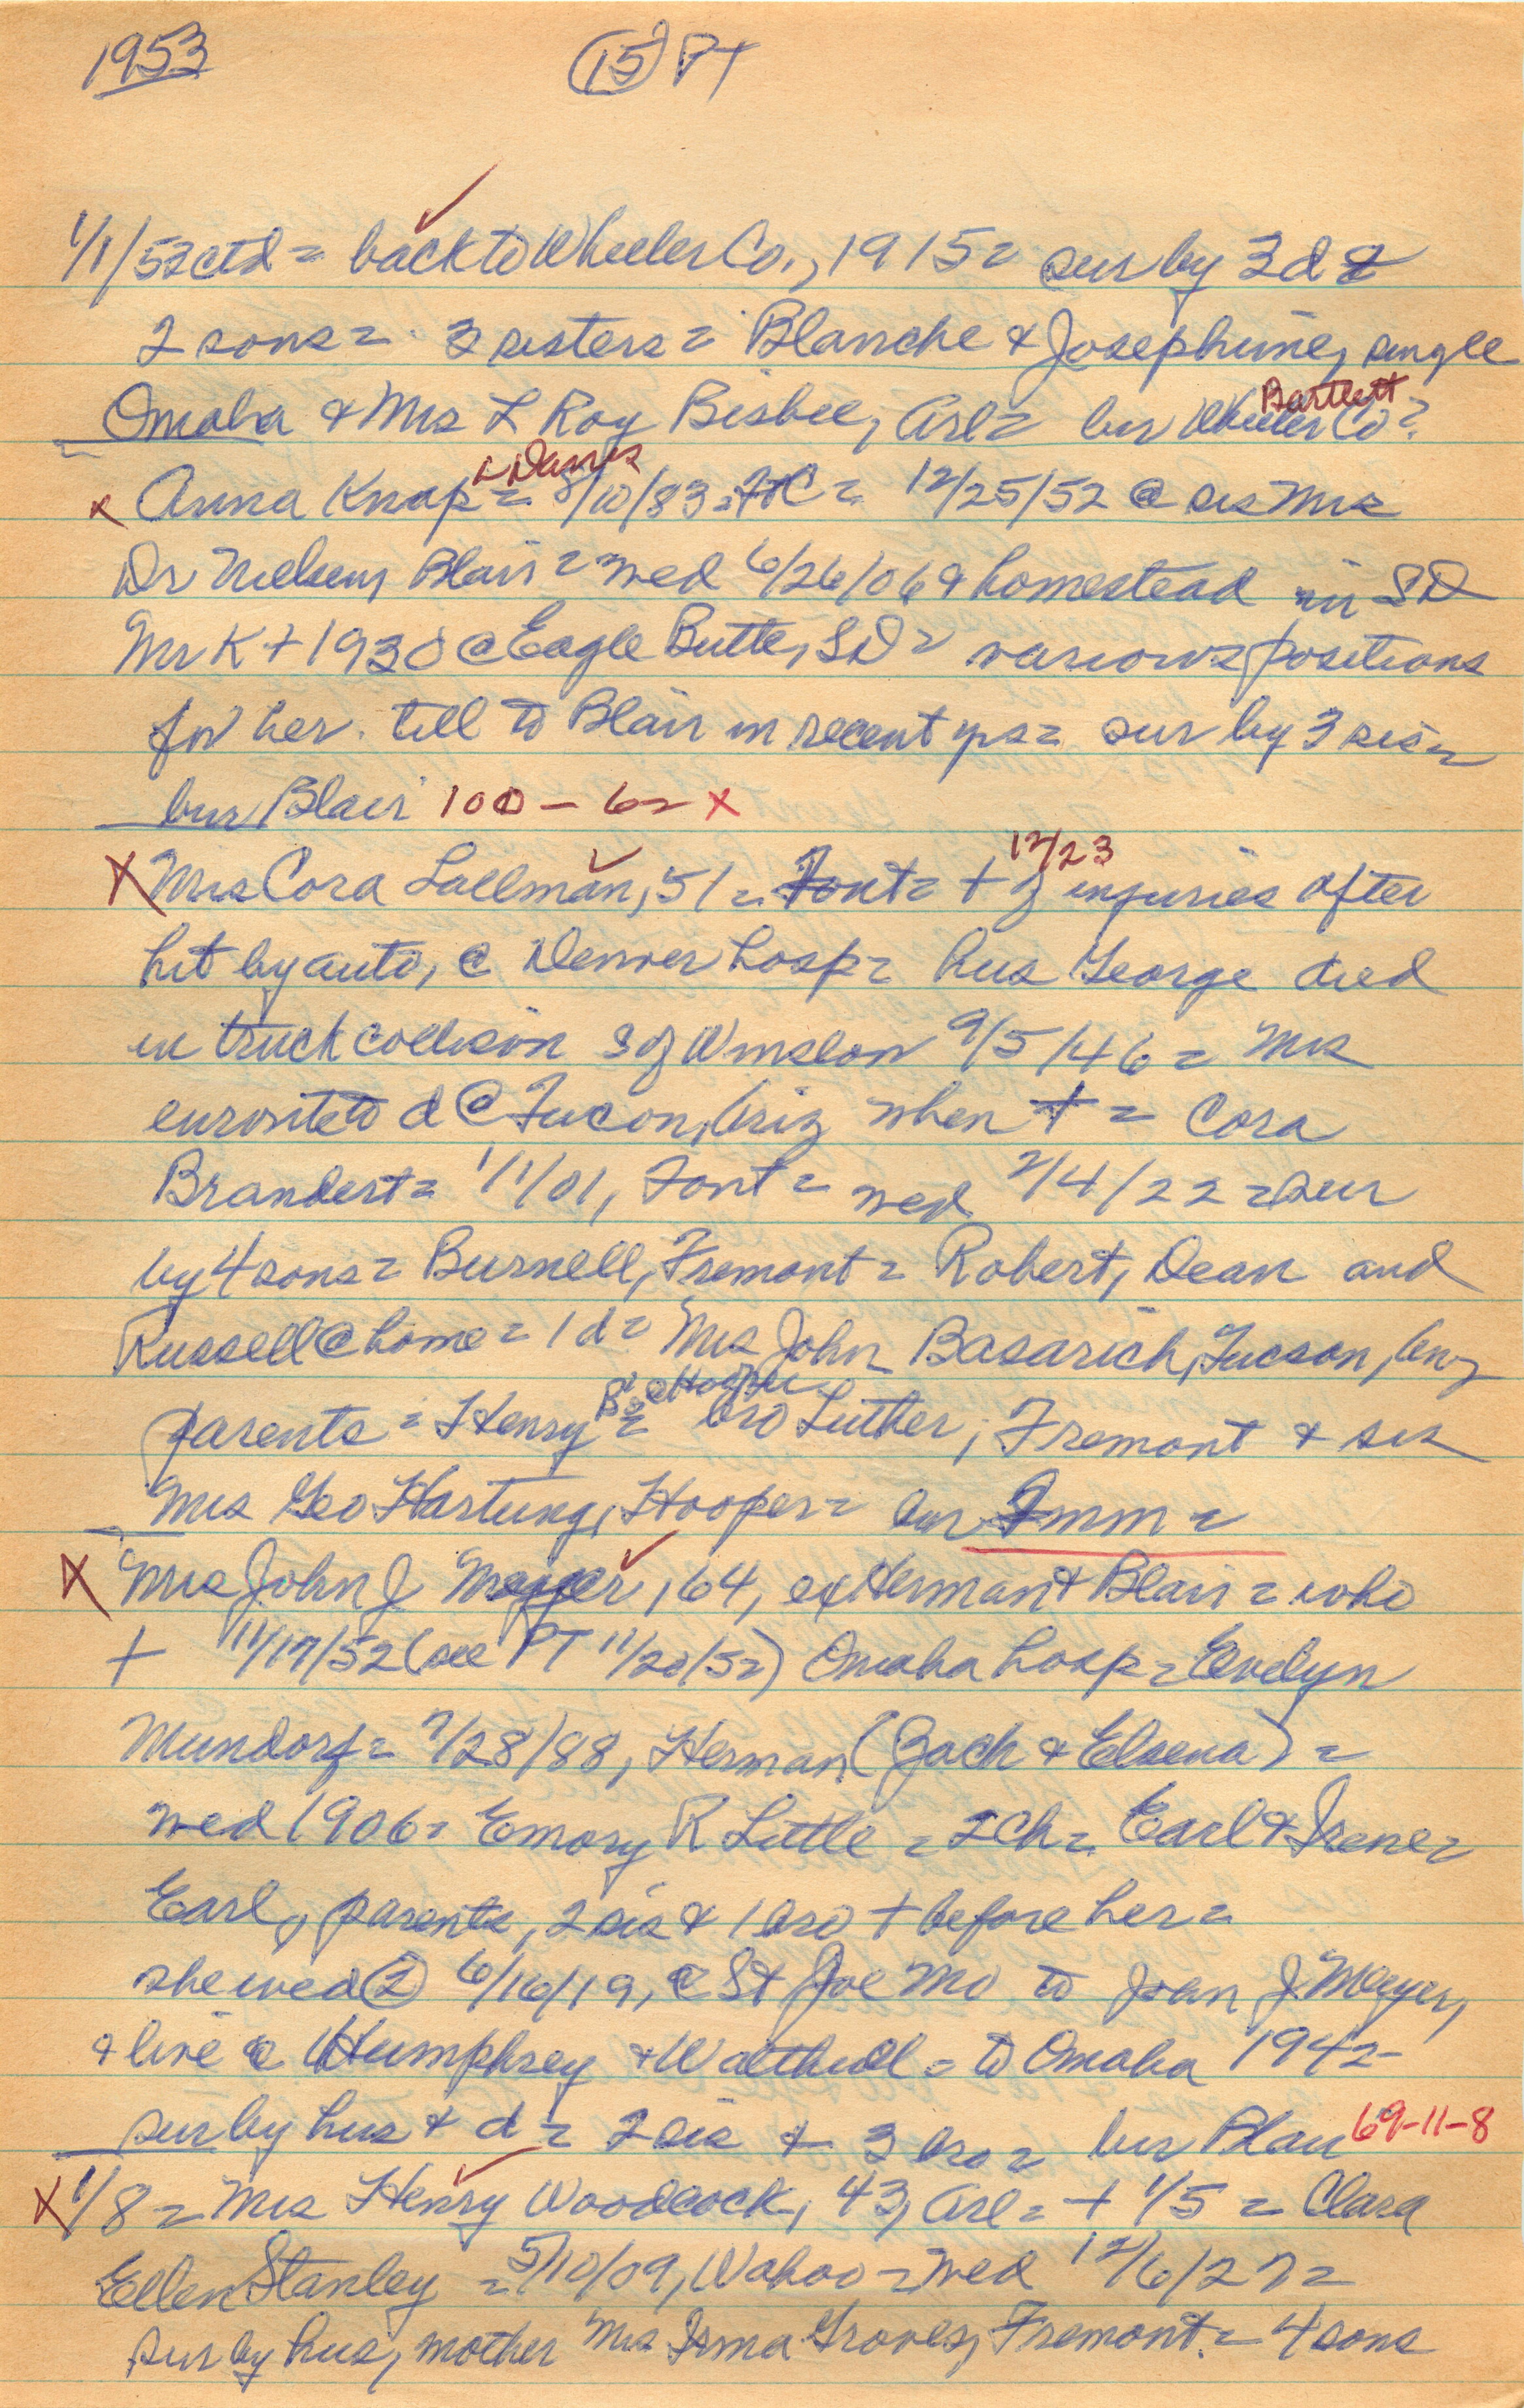 1953 (15) PT
1/1/53 ctd = back to Wheeler Co., 1915 = sur by 3 d &
2 sons = 3 sisters = Blanche & Josephine, single
Omaha & Mrs L Roy Bisbee, Arl = bur Wheeler Co? Bartlett
x Anna Knap = 8/10/83 = = 12/25/52 @ sis Mrs
Dr Nielsen, Blair = wed 6/26/06 & homestead in SD
Mr K + 1930 @ Eagle Butte, SD = various positions
for her till to Blair in recent yrs = sur by 3 sis =
bur Blair 100 - 62 x
X Mrs Cora Lallman, 51 = Font = + 12/23 of injuries after
hit by auto, @ Denver hosp = hus George died
in truck collision S of Winslow 9/5/46 = Mrs
enroute to d @ Tucson, Ariz when + = Cora
Brandert = 1/1/01, Font = wed 2/4/22 = sur
by 4 sons = Burnell, Fremont = Robert, Dean and
Russell @ home = 1 d = Mrs John Basarich, Tucson, Ariz
parents = Henry B's @ Hooper = bro Luther, Fremont & sis
Mrs Geo Hartung, Hooper = bur Imm =
X Mrs John J Meyer, 64, ex Herman & Blair = who
+ 11/17/52 (see PT 11/20/52) Omaha hosp = Evelyn
Mundorf = 7/28/88, Herman (Zach & Elsena) =
wed 1906 = Emory R Little = 2 ch = Earl & Irene =
Earl, parents, 2 sis & 1 bro + before her =
she wed (2) 6/16/19, @ St Joe Mo to John J Meyer,
& live @ Humphrey & Walthill = to Omaha 1942 -
sur by hus & d = 2 sis & 3 bro = bur Blair 69-11-8
X 1/8 = Mrs Henry Woodcock, 43, Arl = + 1/5 = Clara
Ellen Stanley = 5/10/09, Wahoo = wed 12/6/27 =
sur by hus, mother Mrs Irma Groves, Fremont = 4 sons